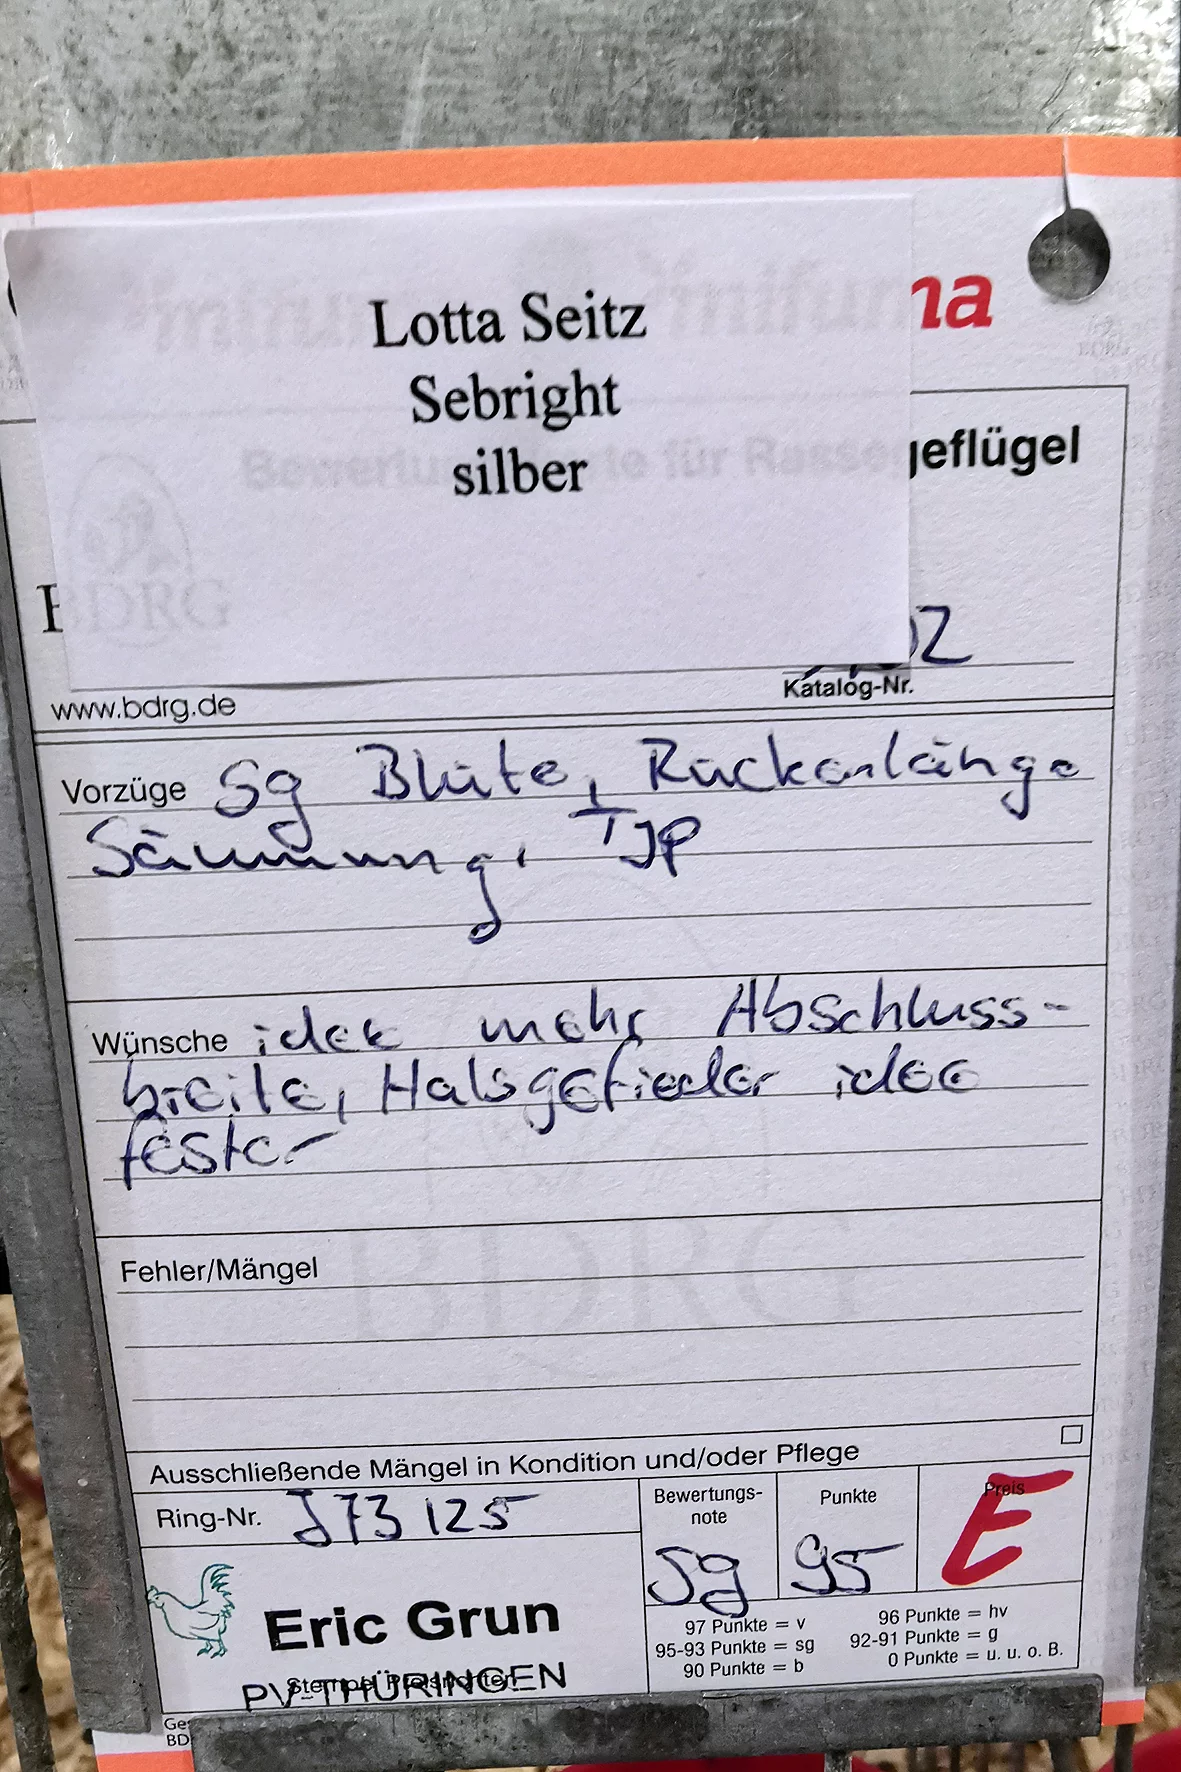 Lotta Seitz
Sebright
silber
na
geflügel
02
Katalog-Nr.
www.bdrg.de
Vorzüge Sg Blüte, Rückenlänge
Säumung, TJP
Wünsche idee mehr Abschluss-
breite, Halsgefieder idee
fester
BDRG
Fehler/Mängel
Ausschließende Mängel in Kondition und/oder Pflege
Ring-Nr. J73 125
Bewertungs-
note
sg
Punkte
95
Preis
E
97 Punkte = v
96 Punkte = hv
95-93 Punkte = sg
92-91 Punkte = g
90 Punkte = b
0 Punkte = u. u. o. B.
Eric Grun
PV-THÜRINGEN
Ge
BD